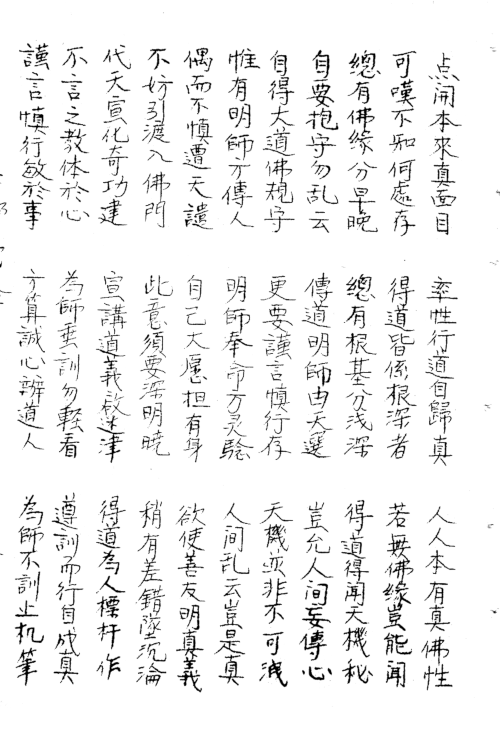 点開本來真面目　率性行道自歸真　人人本有真佛性
可嘆不知何處存　得道皆係根深者　若無佛緣豈能聞
總有佛緣分早晚　總有根基分浅深　得道得聞天機秘
自要抱守勿乱云　傳道明師由天選　豈允人间妄傳心
自得大道佛規守　更要謹言慎行存　天機並非不可洩
惟有明師方傳人　明師奉命万灵騐　人间乱云豈是真
偶而不慎遭天譴　自己大愿担有身　欲使善友明真義
不妨引渡入佛門　此意須要深明曉　稍有差錯墜沉淪
代天宣化奇功建　宣講道義啟迷津　得道為人標杆作
不言之教体於心　為師垂訓勿輕看　遵訓而行自成真
謹言慎行敏於事　方算誠心辦道人　為師不訓止机筆